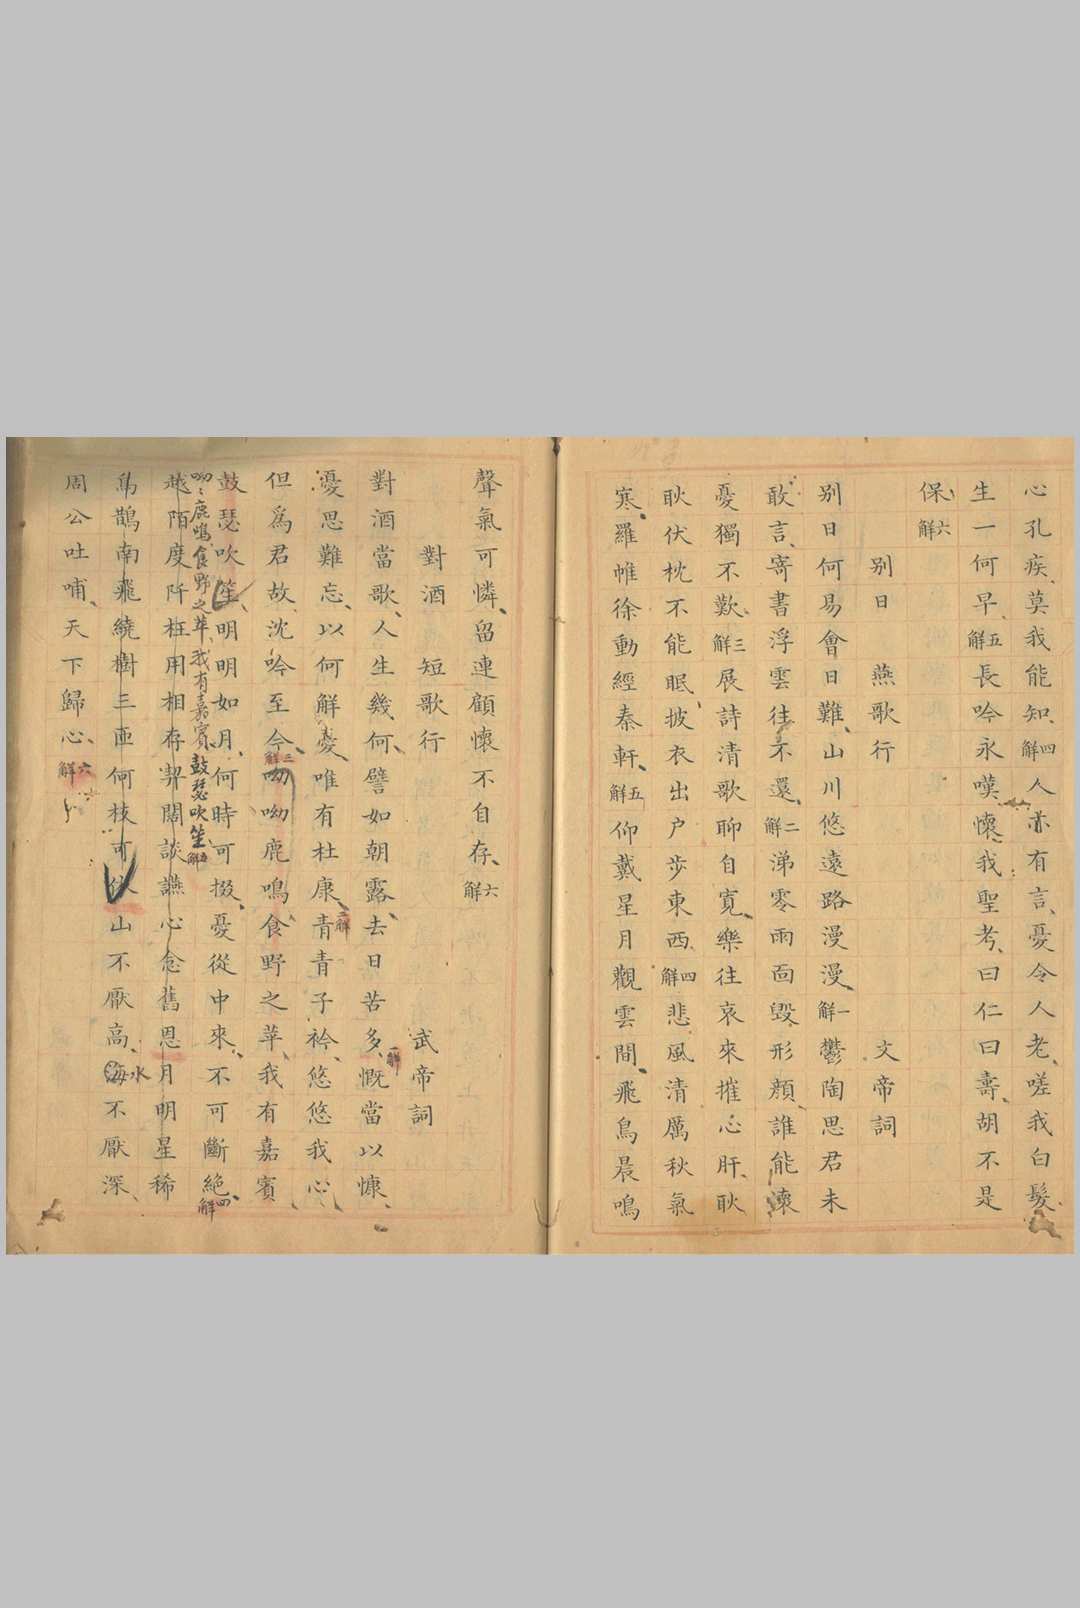 心孔疾、莫我能知、四解人亦有言、憂令人老、嗟我白髮
生一何早、五解長吟永嘆、懷我聖考、曰仁曰壽、胡不是
保、六解
別日 燕歌行 文帝詞
別日何易會日難、山川悠遠路漫漫、一解鬱陶思君未
敢言、寄書浮雲往不還、二解涕零雨面毀形顏、誰能懷
憂獨不歎、三解展詩清歌聊自寬、樂往哀來摧心肝、耿
耿伏枕不能眠、披衣出戶步東西、四解悲風清厲秋氣
寒、羅帷徐動經秦軒、五解仰戴星月觀雲間、飛鳥晨鳴
聲氣可憐、留連顧懷不自存、六解
對酒 短歌行 武帝詞
對酒當歌、人生幾何、譬如朝露、去日苦多、一解慨當以慷、
憂思難忘、以何解憂、唯有杜康、二解青青子衿、悠悠我心、
但爲君故、沈吟至今、三解呦呦鹿鳴、食野之苹、我有嘉賓、
鼓瑟吹笙、明明如月、何時可掇、憂從中來、不可斷絕、四解
呦、鹿鳴、食野之苹、我有嘉賓、鼓瑟吹笙、解
越陌度阡枉用相存契闊談讌心念舊恩月明星稀
烏鵲南飛繞樹三匝何枝可依山不厭高、海水不厭深、
周公吐哺、天下歸心、六解